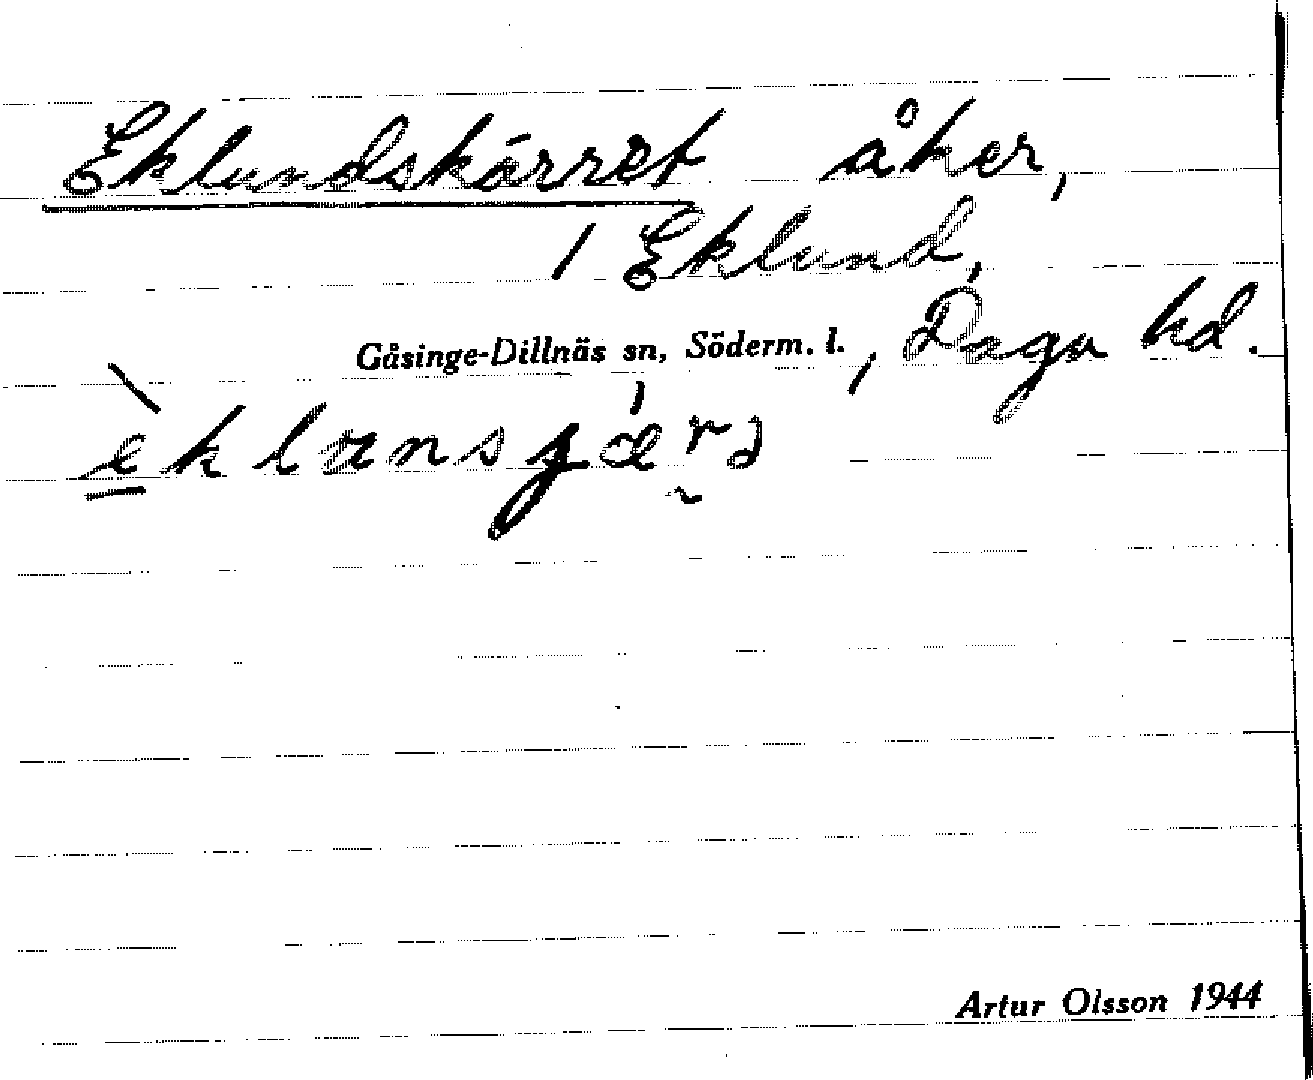 Eklundskärret åker,
/ Eklund,
Gåsinge-Dillnäs sn, Söderm. l., Daga hd.
Artur Olsson 1944